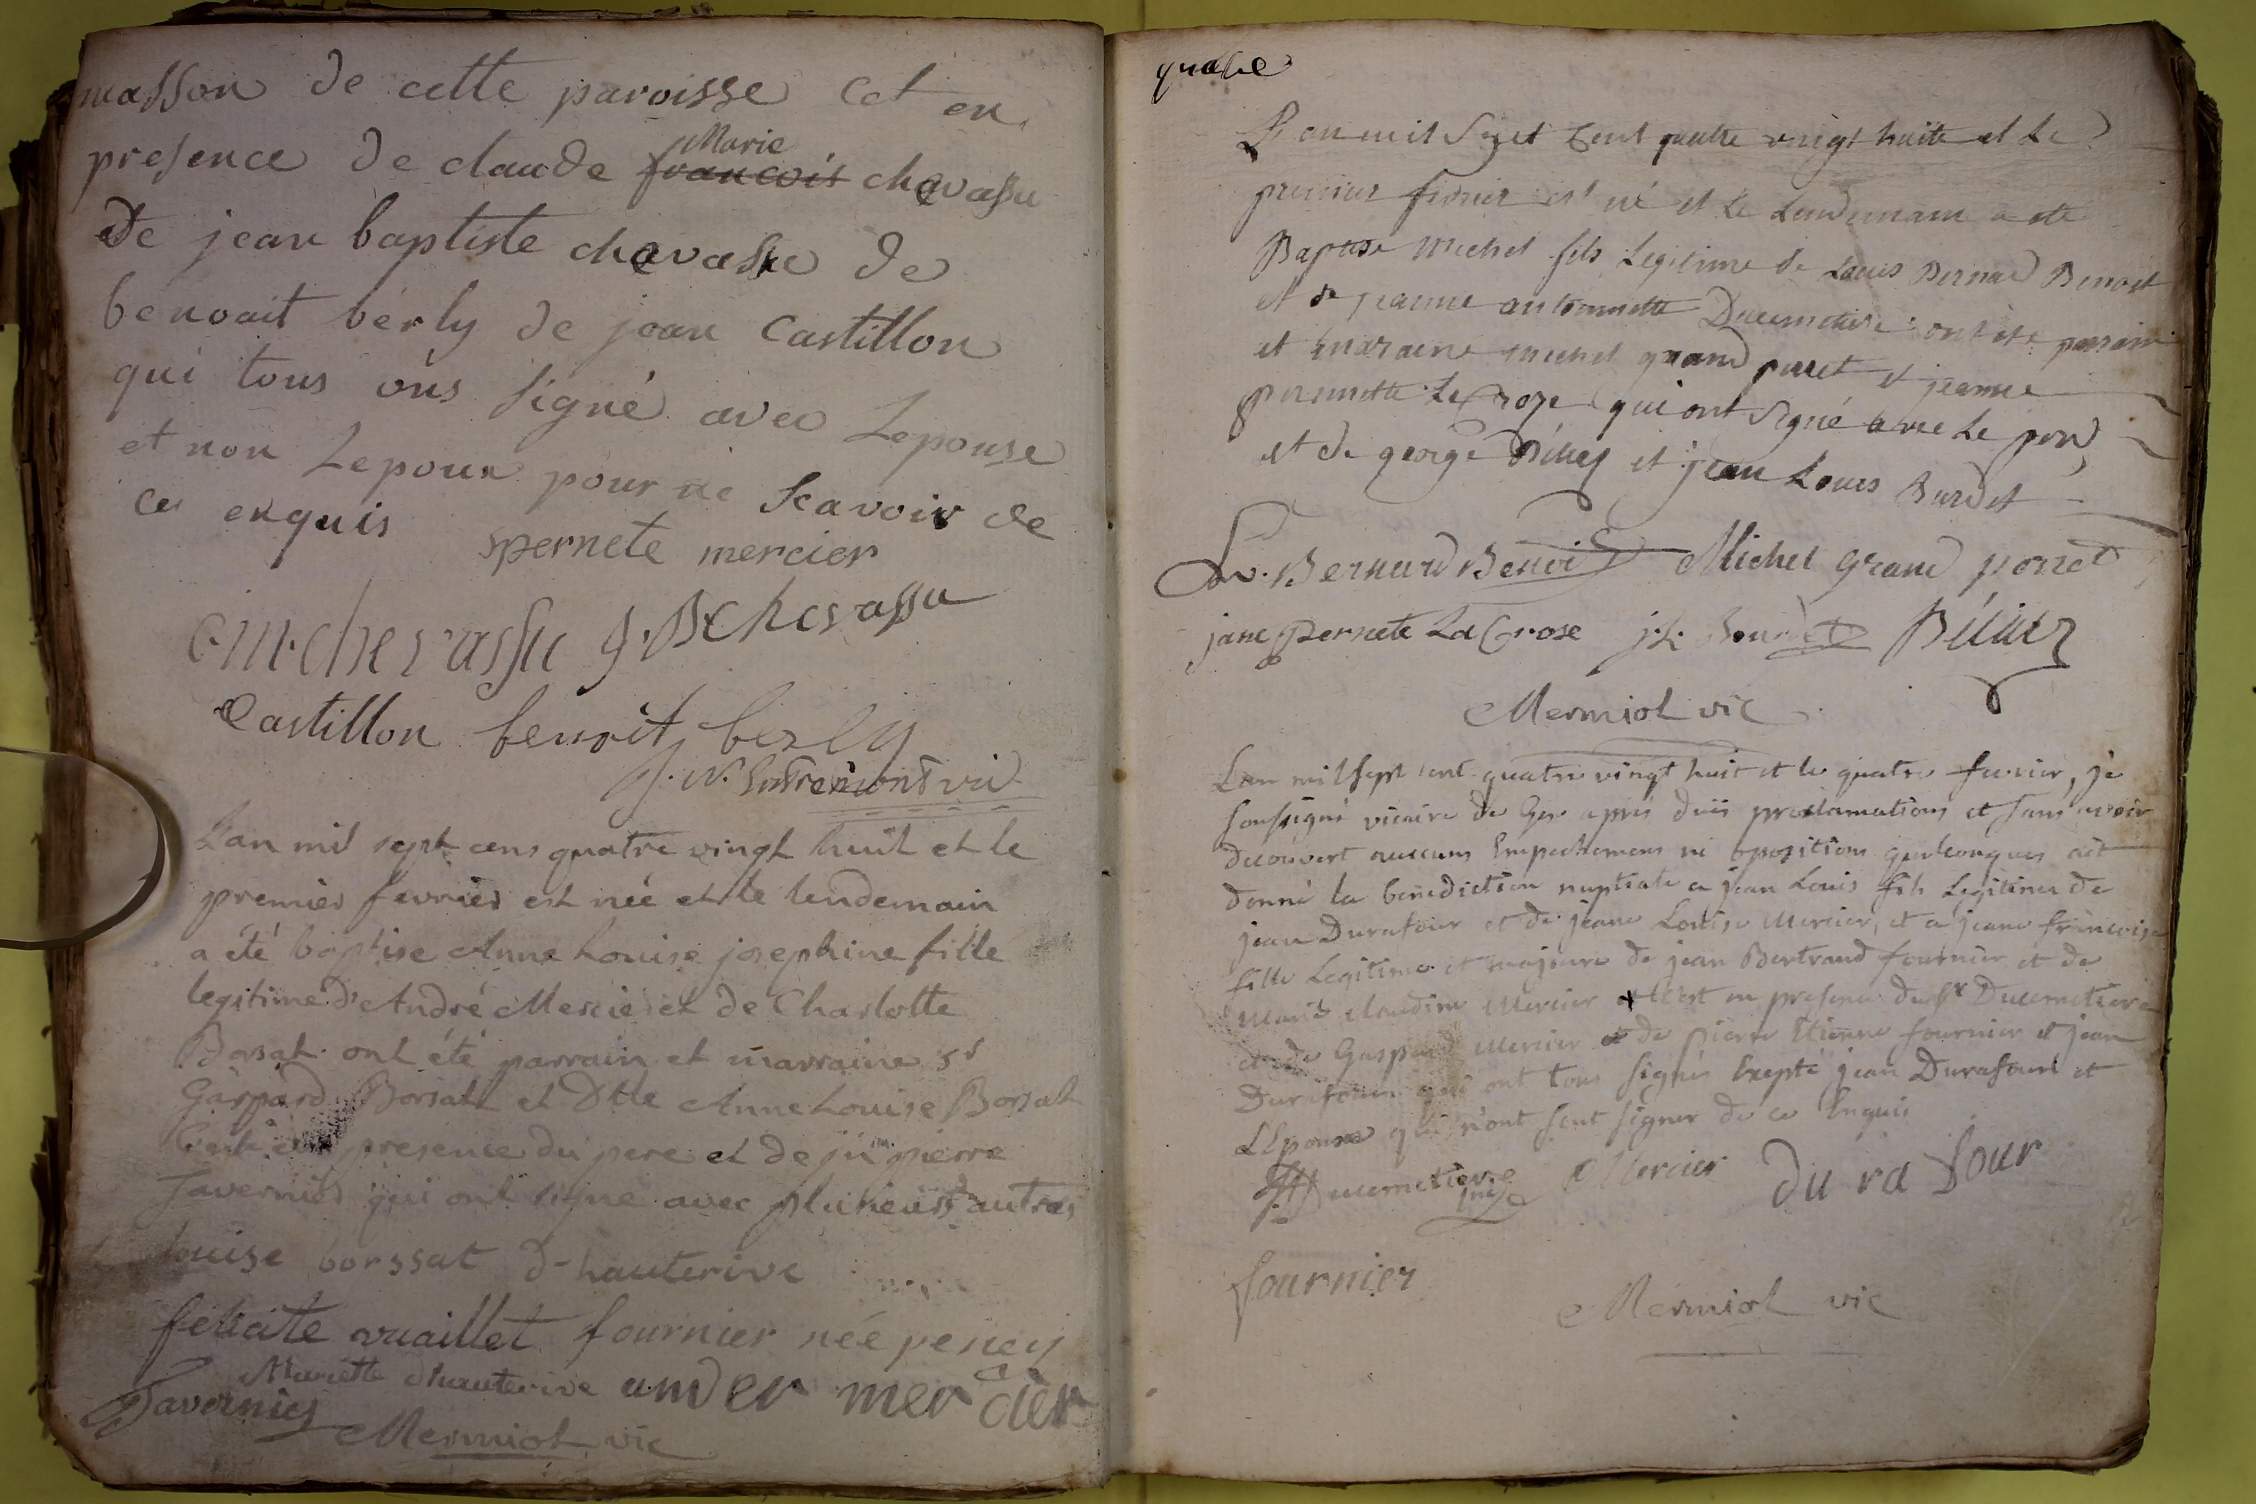 masson de cette paroisse cet en
presence de claude Marie francois chevassu
de jean baptiste chevassu de
benoait berly de jean Castillon
qui tous ons signé avec Lepouse
et non Lepoux pour ne scavoir de
ce enquis
pernete mercier
C. m. chevassu J. B. Chevassu
Castillon benoit berly
vic
Lan mil sept cens quatre vingt huit et le
premier fevrier est née et le lendemain
a été baptise Anne Louise josephine fille
legitime d'André Mercier et de Charlotte
Borsat ont été parrain et marraine sr
Gaspard Borsat et Dlle Anne Louise Borsat
presence du pere et de pierre
Tavernier qui ont signe avec plusieurs autres
louise borssat d-hauterive
felicite vuaillet fournier née pency
Mariette d'hauterive ander mercier
Tavernier
Mermiol vic
quatre
L an mil sept Cent quatre vingt huite et Le
premier fevrier est né et Le Lendemain a ete
Baptise Michel fils Legitime de Louis Bernard Benoit
et de jeanne antoinette Ducimetiere ont ete parain
et maraine michel grand perret et jeanne
pernette La Croze qui ont signé avec Le pere
et de george et jean Louis Burdet
Lo. Bernard Benoit Michel grand perret
jane pernete La Crose j. L.
Mermiol vic
Lan mil sept cent quatre vingt huit et le quatre fevrier, je
soussigné vicaire de Gex apres duës proclamations et sans avoir
decouvert auccuns Empechemens ni opositions quelconques ait
donné la bénediction nuptiale a jean Louis fils Legitime de
jean Durafour et de jeane Louise Mercier, et a jeane francoise
fille Legitime et majeure de jean Bertrand fournier et de
Marie claudine Mercier et c'est en presence du Sr Ducimetiere
et de Gaspard Mercier et de pierre Etienne fournier et jean
Durafour qui ont tous signés Excepté jean Durafour et
LEpouse qui n'ont sceut signer de ce Enquis
Ducimetiere Mercier du ra four
fournier
Mermiol vic